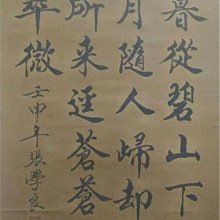 暮從碧山下
月随人歸却
所来迳蒼蒼
翠微
壬申年張學良